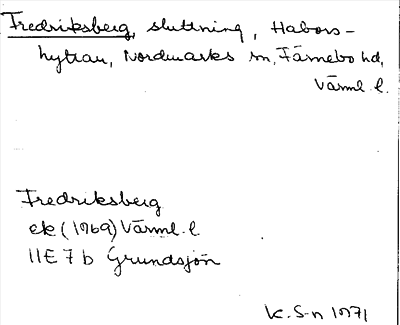 Fredriksberg, sluttning, Habors-
hyttan, Nordmarks sn, Färnebo hd,
Värml. l.
Fredriksberg
ek (1969) Värml. l.
11E 7b Grundsjön
K. S-n 1971